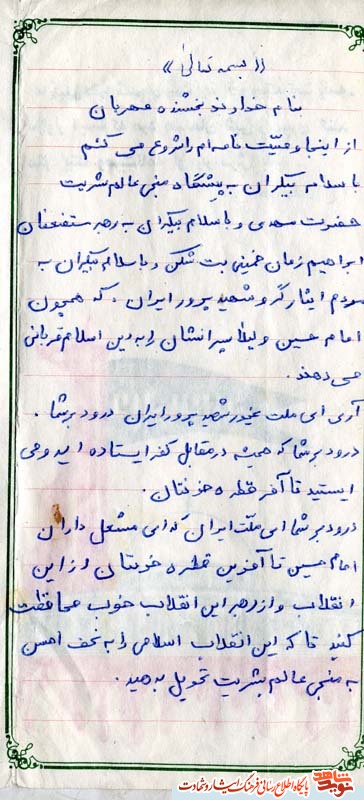 (( بسمه تعالی ))
بنام خداوند بخشنده مهربان
از اینجا وصیت نامه ام را شروع می کنم
با سلام بیکران به پیشگاه منجی عالم بشریت
حضرت مهدی و با سلام بیکران به رهبر مستضعفان
ابراهیم زمان خمینی بت شکن و با سلام بیکران به
مردم ایثارگر و شهید پرور ایران ، که همچون
امام حسین و لیلا پسرانشان را به دین اسلام قربانی
می دهند .
آری ای ملت غیور شهید پرور ایران درود بر شما .
درود بر شما که همیشه در مقابل کفر ایستاده اید و می
ایستید تا آخر قطره خونتان .
درود بر شما ای ملت ایران که ای مشعل داران
امام حسین تا آخرین قطره خونتان از این
انقلاب و از رهبر این انقلاب خوب محافظت
کنید تا که این انقلاب اسلامی را به نحو احسن
به منجی عالم بشریت تحویل بدهید .
نوید شاهد
پایگاه اطلاع رسانی فرهنگ ایثار و شهادت